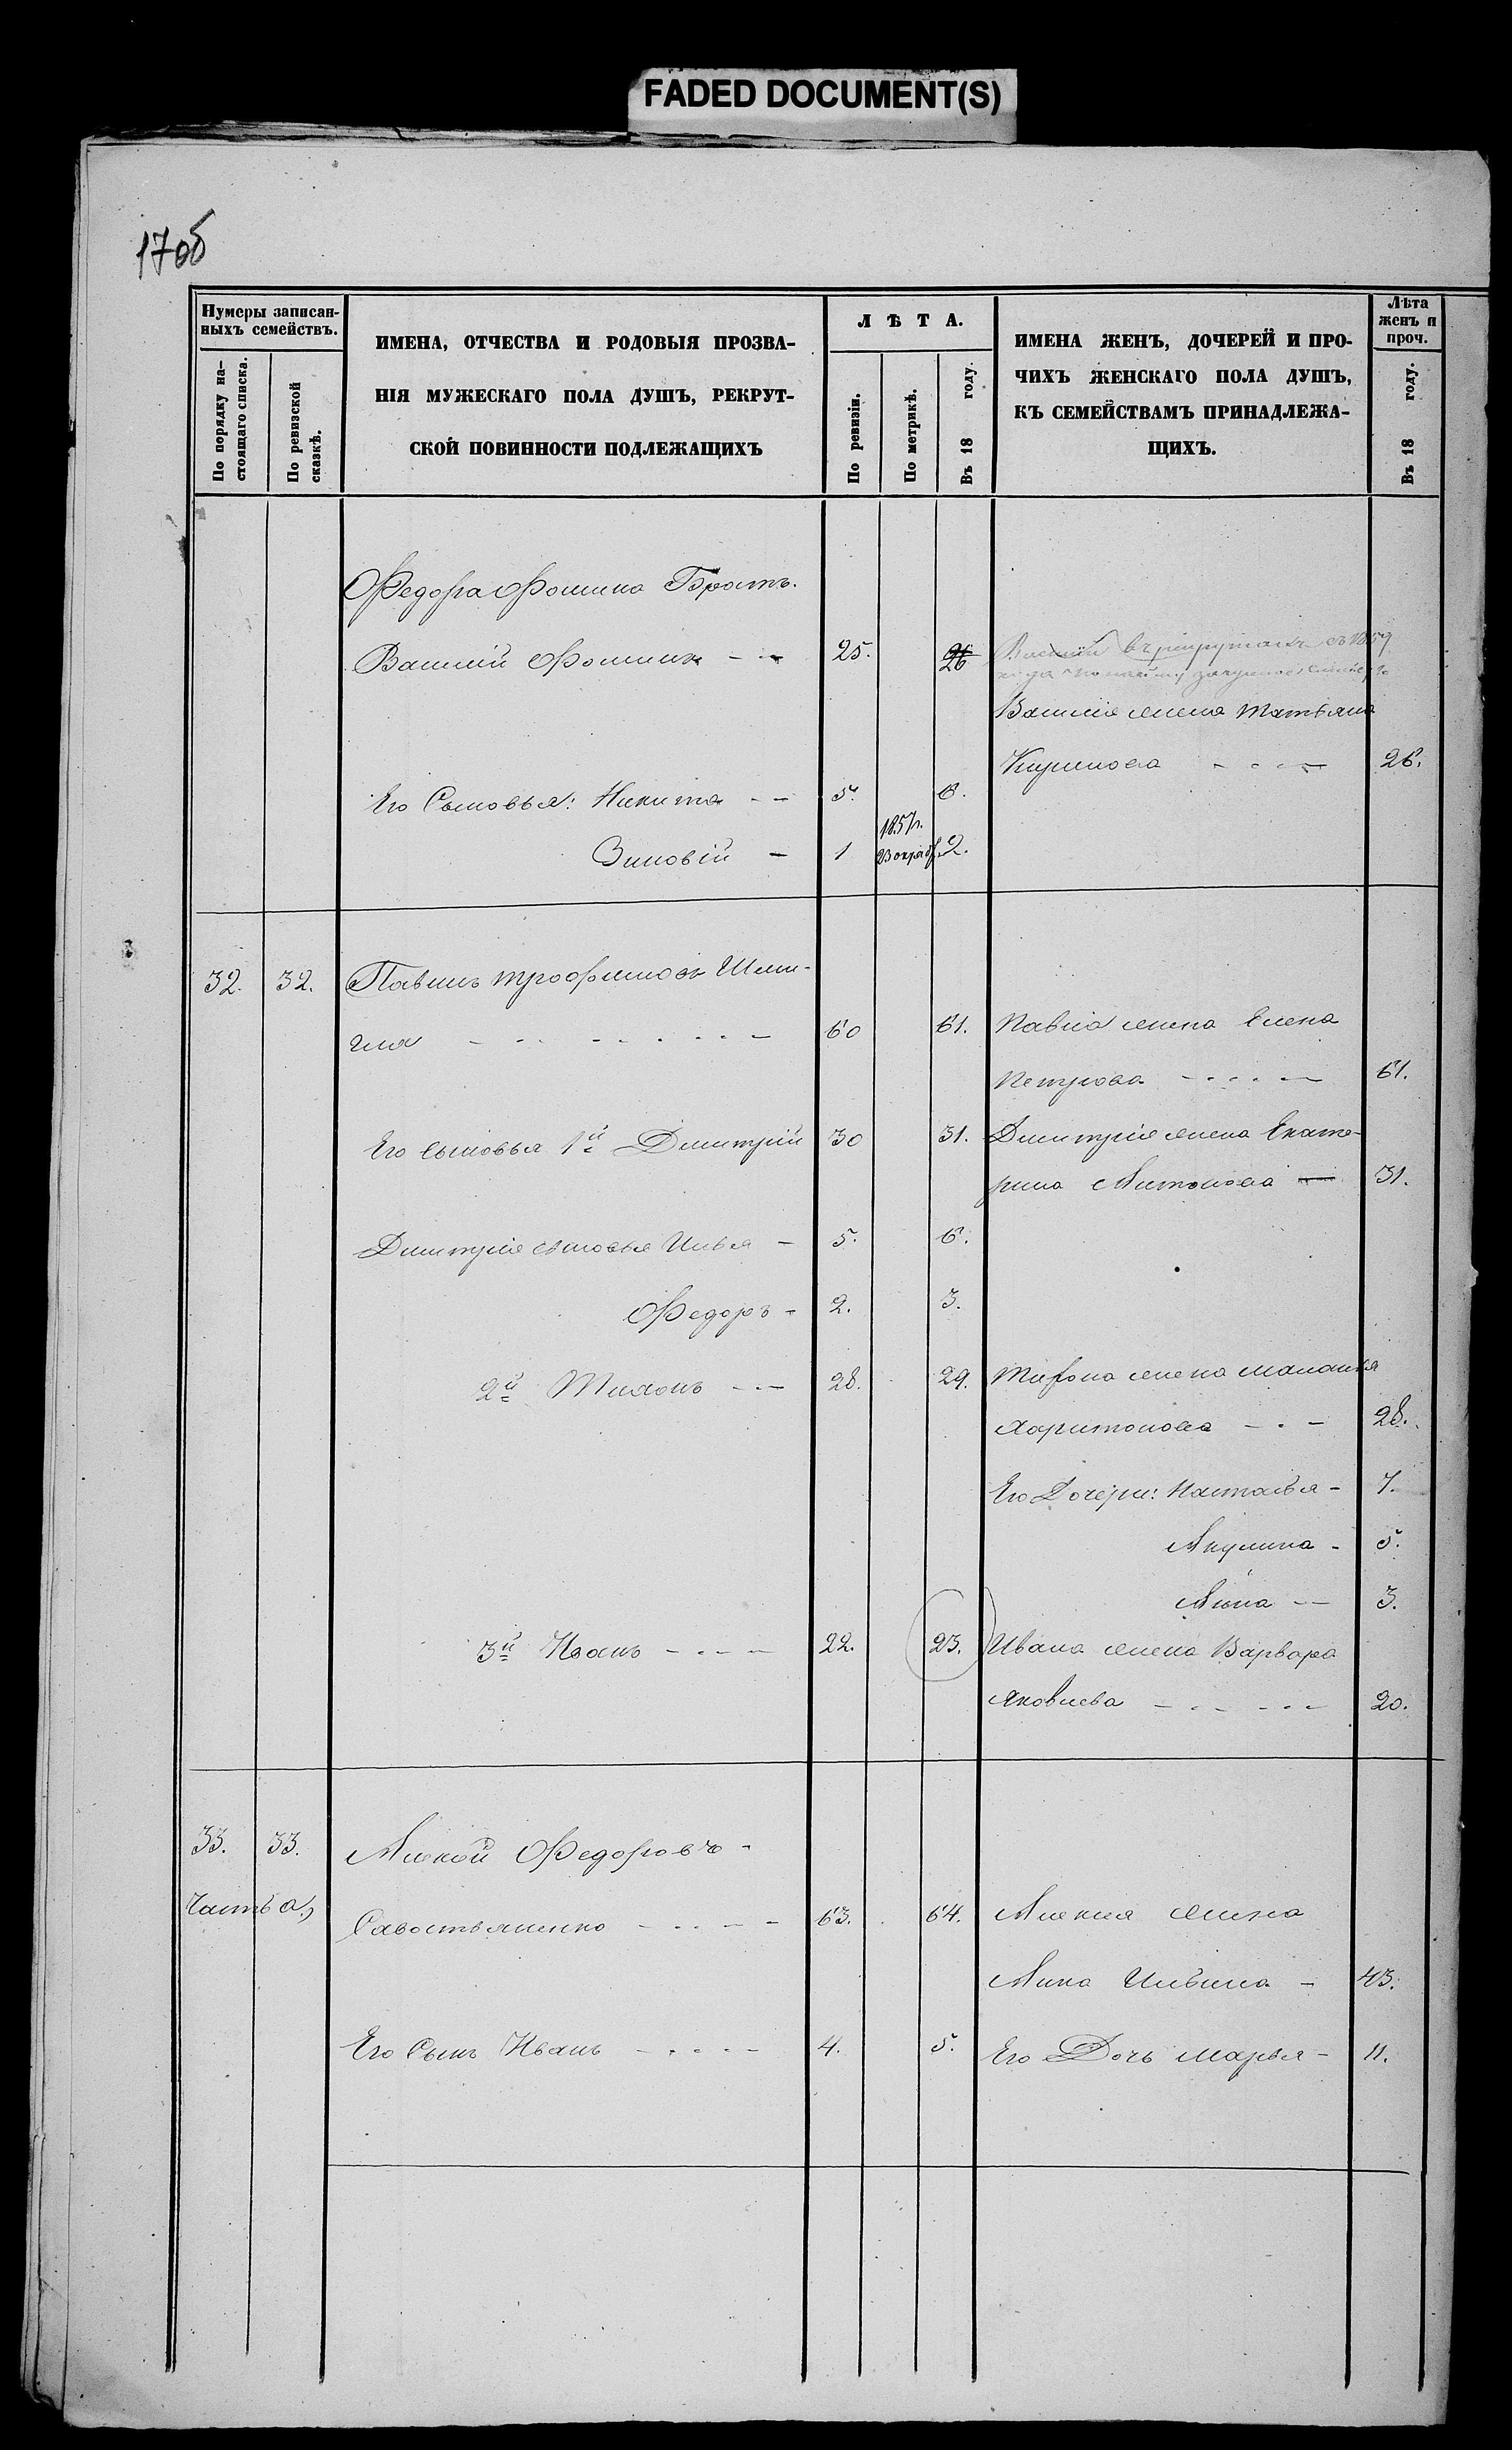 FADED DOCUMENT(S)
17об
Нумеры записан-
ныхъ семействъ.
По порядку на-
стоящаго списка.
По ревизской
сказкѣ.
ИМЕНА, ОТЧЕСТВА И РОДОВЫЯ ПРОЗВА-
НІЯ МУЖЕСКАГО ПОЛА ДУШЪ, РЕКРУТ-
СКОЙ ПОВИННОСТИ ПОДЛЕЖАЩИХЪ
ЛѢТА.
По ревизіи.
По метрикѣ.
Въ 18 году.
ИМЕНА ЖЕНЪ, ДОЧЕРЕЙ И ПРО-
ЧИХЪ ЖЕНСКАГО ПОЛА ДУШЪ,
КЪ СЕМЕЙСТВАМЪ ПРИНАДЛЕЖА-
ЩИХЪ.
Лѣта
женъ и
проч.
Въ 18 году.
Федора Фомина Братъ.
Василій Фоминъ - - 25. 26 Василій въ рекрутахъ съ 1859
года
Василія жена Татьяна
Кирилова - - - - 26.
Его Сыновья: Никита - - 5. 6.
1857г.
Зиновій - 1 23 октяб. 2.
32. 32. Павелъ Трофимовъ
60 61. Павла жена Елена
Петрова - - - - - 61.
Его сыновья 1й Димитрій 30 31. Димитрія жена Екате-
рина Антонова - 31.
Димитрія сыновья Илья - 5. 6.
Федоръ - 2. 3.
2й Тихонъ - - 28. 29. Тихона жена Маланья
Харитонова - - - 28.
Его Дочери: Настасья - 7.
Акулина - 5.
Анна - - 3.
3й Иванъ - - - - 22. 23. Ивана жена Варвара
Яковлева - - - - - - 20.
33. 33. Алексѣй Федоровъ -
Часть а,
Савостьяненко - - - - - 63. 64. Алексѣя жена
Анна Ильина - 43.
Его Сынъ Иванъ - - - - - 4. 5. Его Дочь Марья - 11.